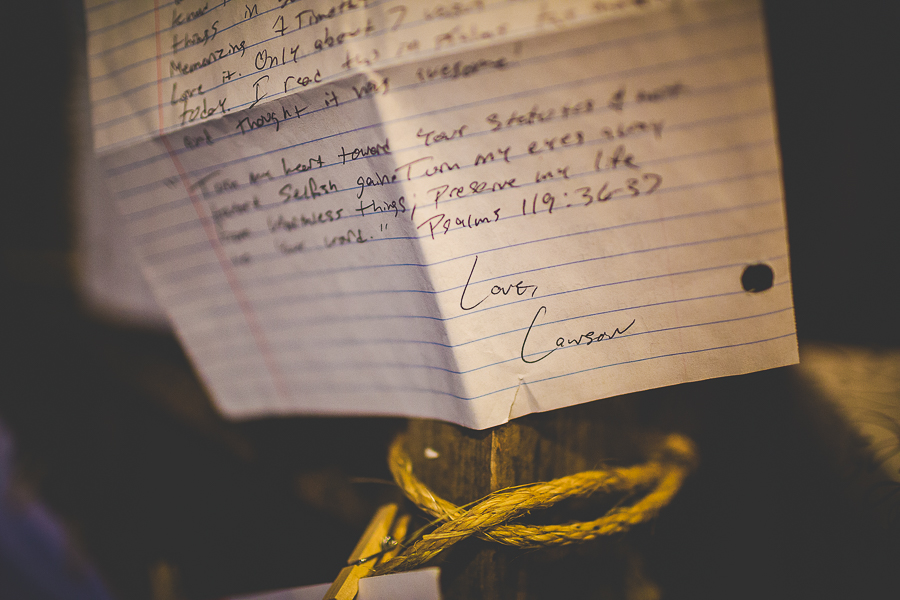 things in
Memorizing 1 Timothy
Love it. Only about 7
today. I read two in Psalms
and thought it was awesome!
"Turn my heart toward Your statutes & not
toward selfish gain. Turn my eyes away
from worthless things, preserve my life
word." Psalms 119:36-37
Love,
Lawson